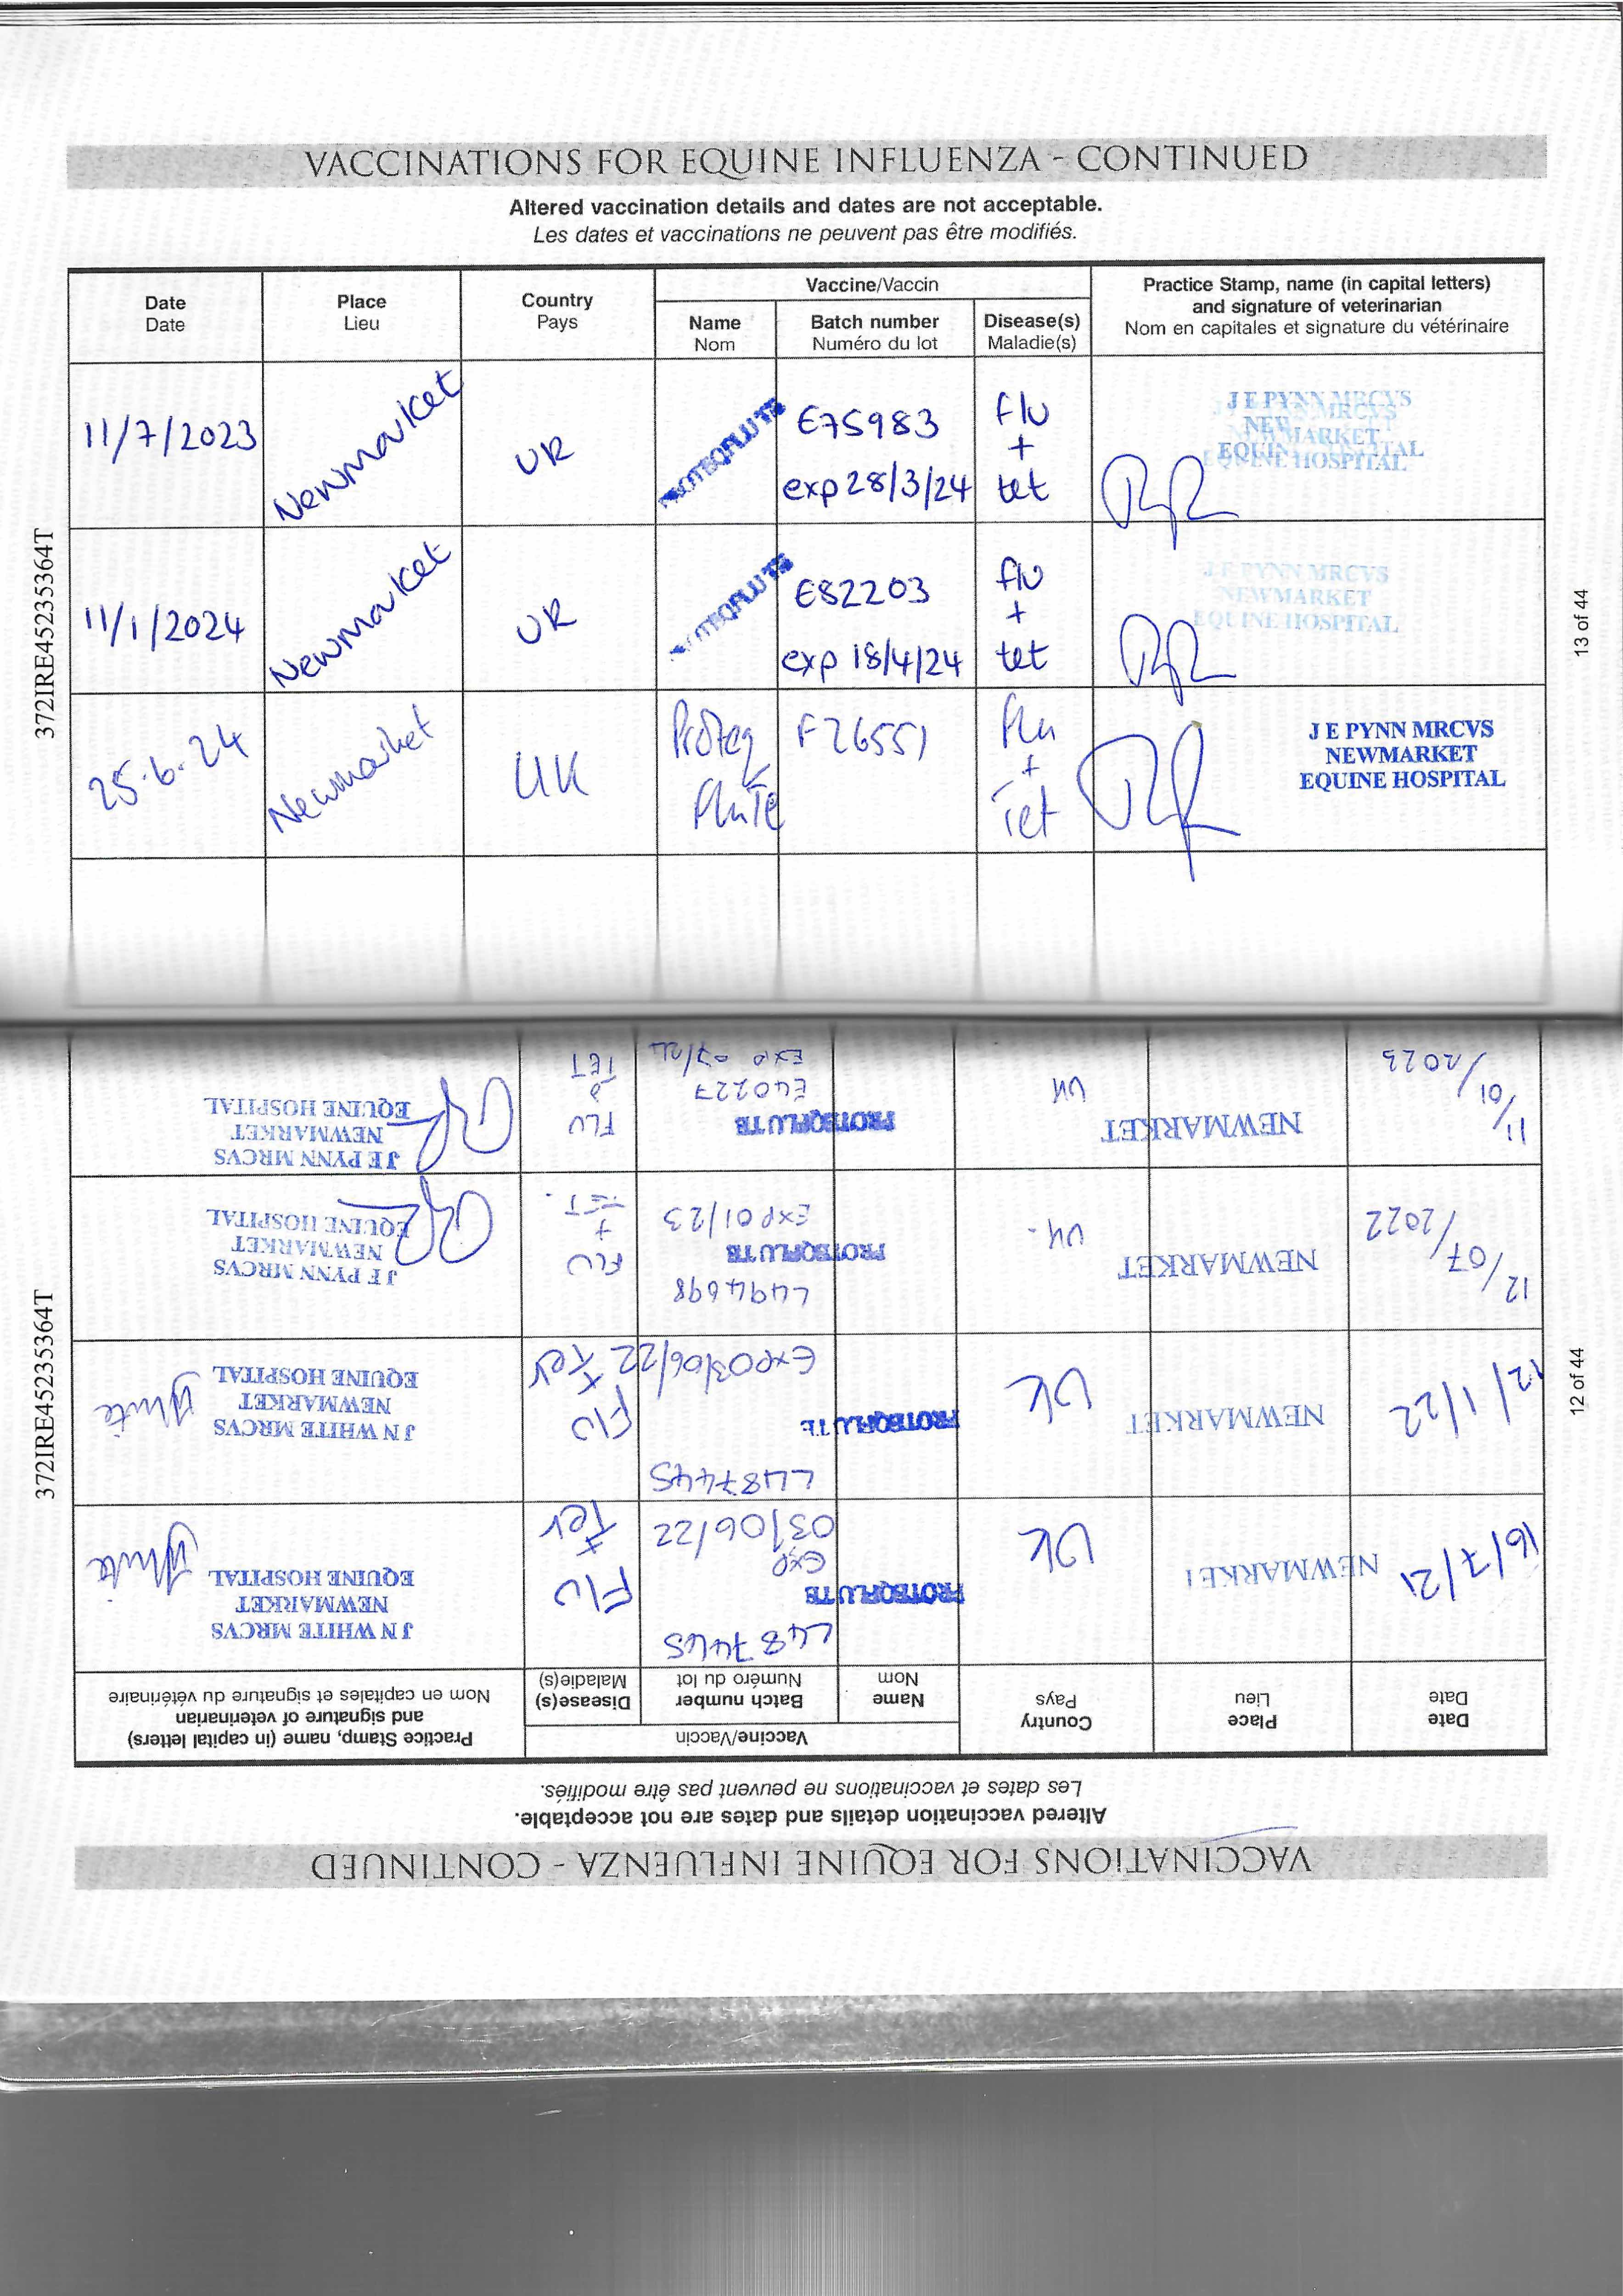 VACCINATIONS FOR EQUINE INFLUENZA - CONTINUED
Altered vaccination details and dates are not acceptable.
Les dates et vaccinations ne peuvent pas être modifiés.
Date
Date
Place
Lieu
Country
Pays
Vaccine/Vaccin
Name
Nom
Batch number
Numéro du lot
Disease(s)
Maladie(s)
Practice Stamp, name (in capital letters)
and signature of veterinarian
Nom en capitales et signature du vétérinaire
11/7/2023
Newmarket
UK
PROTEQFLU TE
E75983
exp 28/3/24
flu
+
tet
J E PYNN MRCVS
NEWMARKET
EQUINE HOSPITAL
11/1/2024
Newmarket
UK
PROTEQFLU TE
E82203
exp 18/4/24
flu
+
tet
J E PYNN MRCVS
NEWMARKET
EQUINE HOSPITAL
25.6.24
Newmarket
UK
Proteq
Flu Te
F26551
Flu
+
Tet
J E PYNN MRCVS
NEWMARKET
EQUINE HOSPITAL
372IRE45235364T
13 of 44
VACCINATIONS FOR EQUINE INFLUENZA - CONTINUED
Altered vaccination details and dates are not acceptable.
Les dates et vaccinations ne peuvent pas être modifiés.
Date
Date
Place
Lieu
Country
Pays
Vaccine/Vaccin
Name
Nom
Batch number
Numéro du lot
Disease(s)
Maladie(s)
Practice Stamp, name (in capital letters)
and signature of veterinarian
Nom en capitales et signature du vétérinaire
16/7/21
NEWMARKET
UK
L487445
PROTEQFLU TE
exp
03/06/22
FLU
+
Tet
J N WHITE MRCVS
NEWMARKET
EQUINE HOSPITAL
White
12/1/22
NEWMARKET
UK
L487445
PROTEQFLU TE
Exp 03/06/22
FLU
+
Tet
J N WHITE MRCVS
NEWMARKET
EQUINE HOSPITAL
White
12/07/2022
NEWMARKET
UK.
L494698
PROTEQFLU TE
EXP 01/23
FLU
+
TET.
J E PYNN MRCVS
NEWMARKET
EQUINE HOSPITAL
11/01/2023
NEWMARKET
UK
PROTEQFLU TE
E40227
FLU
TET
J E PYNN MRCVS
NEWMARKET
EQUINE HOSPITAL
372IRE45235364T
12 of 44